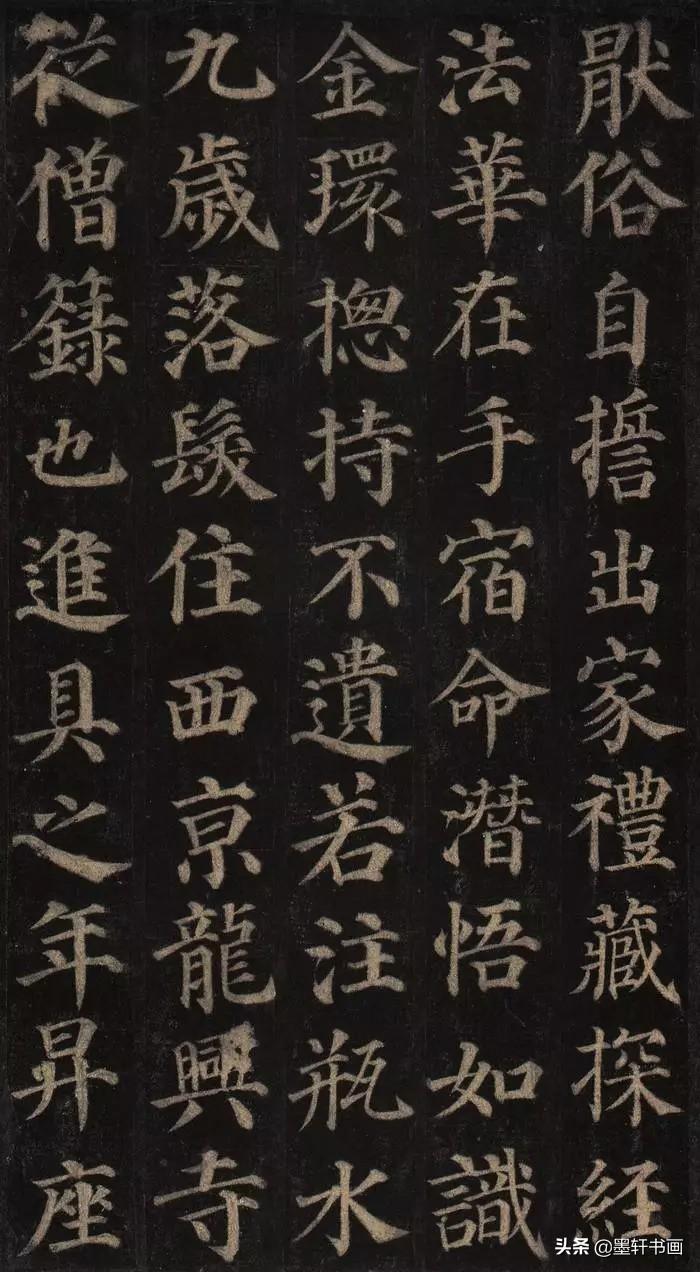 猒俗自擔出家禮藏探経
法華在手宿命潛悟如識
金環揔持不遺若注瓶水
九歲落髮住西京龍興寺
從僧籙也進具之年昇座
头条 @墨轩书画